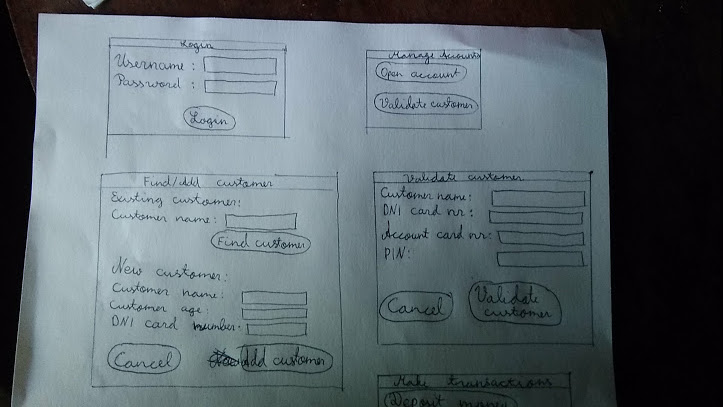 Login
Username:
Password:
Login
Manage Accounts
Open account
Validate customer
Find/Add customer
Existing customer:
Customer name:
Find customer
New customer:
Customer name:
Customer age:
DNI card number:
Cancel
Add customer
Validate customer
Customer name:
DNI card nr:
Account card nr:
PIN:
Cancel
Validate
customer
Make transactions
Deposit money